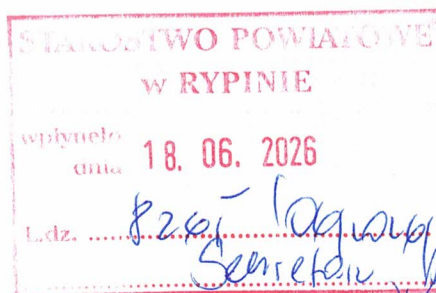 STAROSTWO POWIATOWE
w RYPINIE
wpłynęło
dnia 18. 06. 2026
L.dz.
Sekretarz